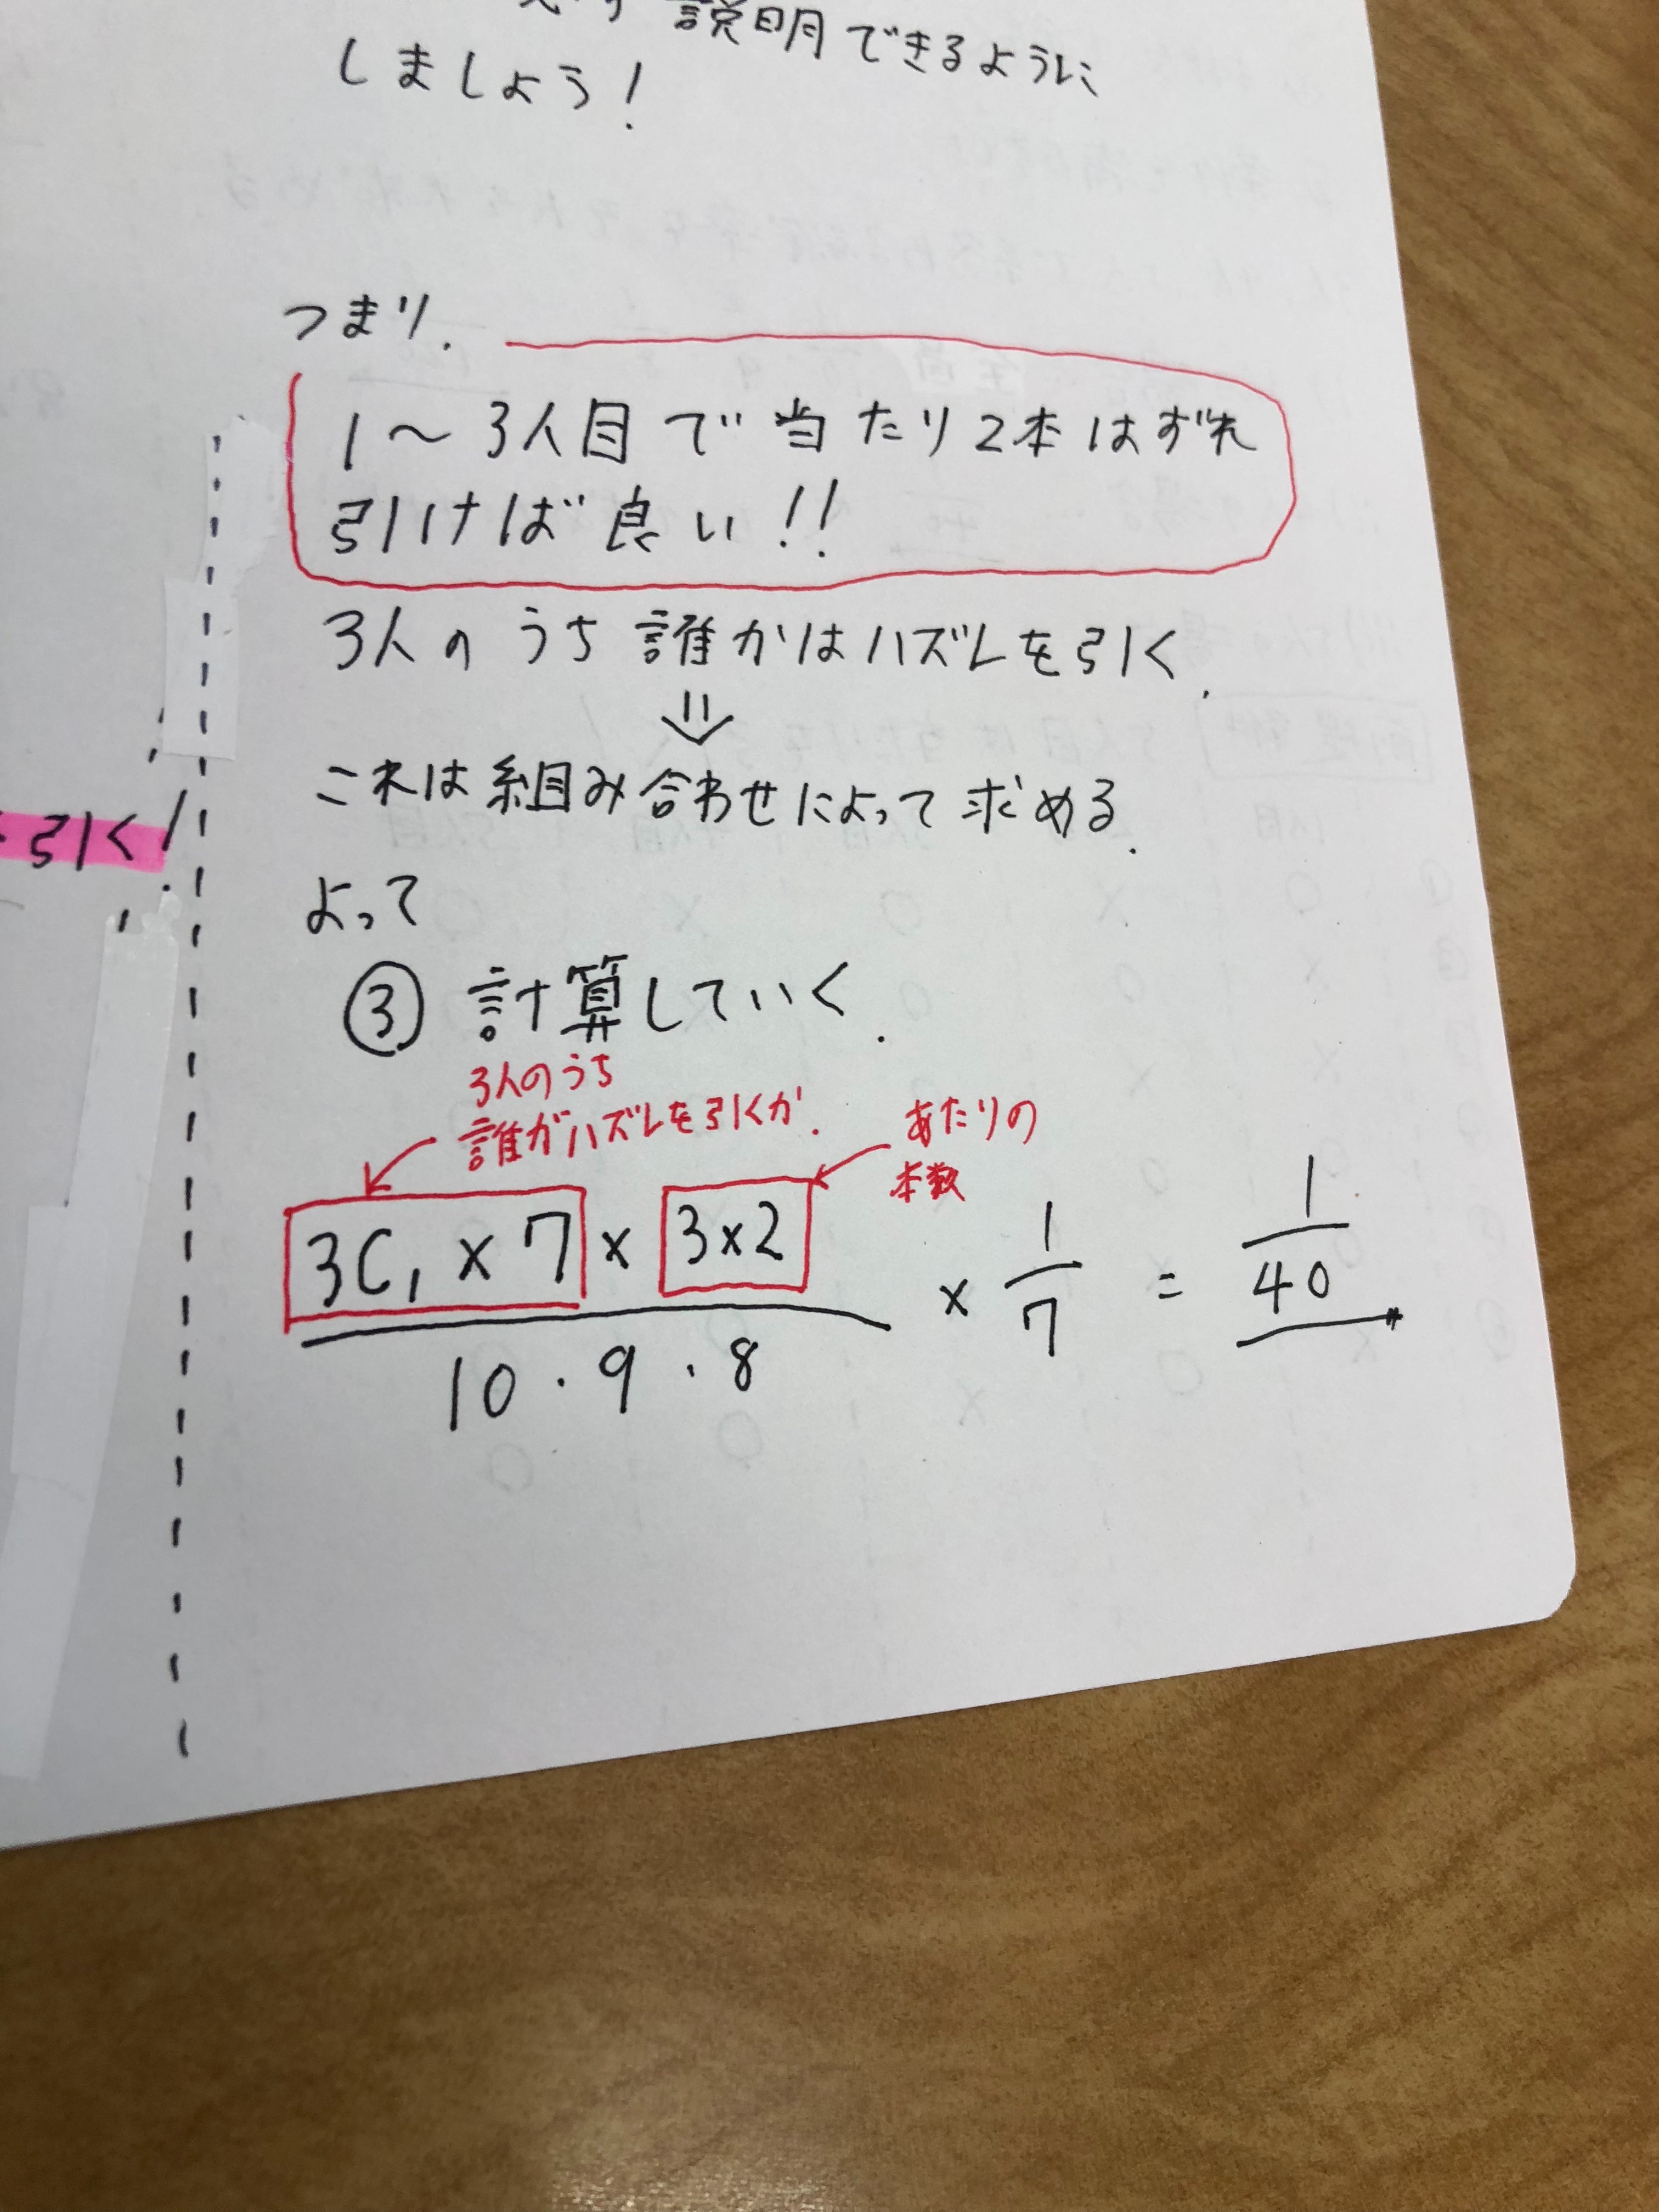 説明できるように
しましょう!
つまり.
1〜3人目で当たり2本はずれ
引ければ良い!!
3人のうち誰かはハズレを引く.
⇓
これは組み合わせによって求める.
引く!
よって
③ 計算していく.
3人のうち
誰がハズレを引くか.
あたりの
本数
3C₁ × 7 × 3×2
10・9・8
× 1/7 = 1/40